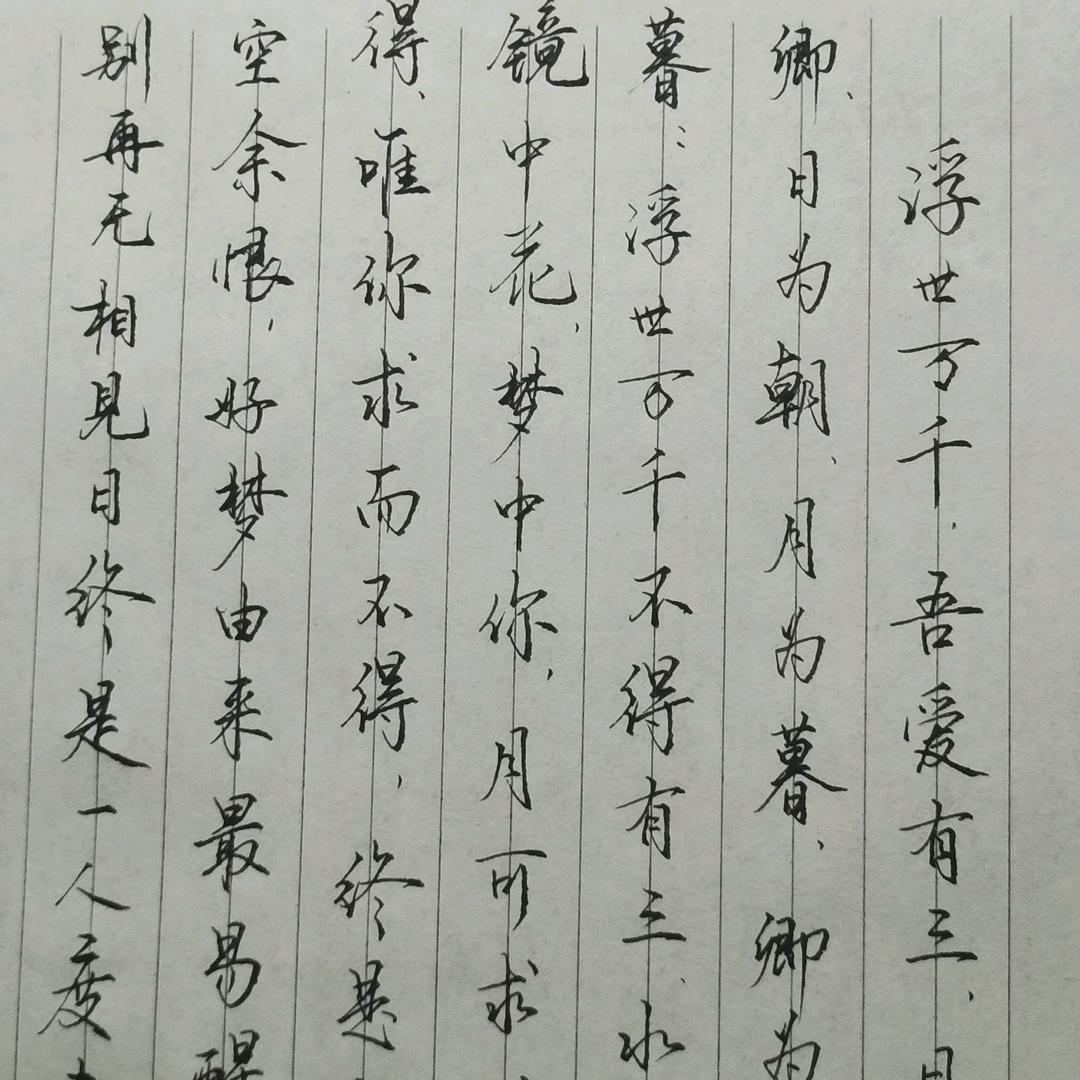 浮世万千，吾爱有三，日
卿，日为朝，月为暮，卿为
暮：浮世万千不得有三，水
镜中花，梦中你，月可求，
得，唯你求而不得，终是
空余恨，好梦由来最易醒
别再无相见日终是一人度